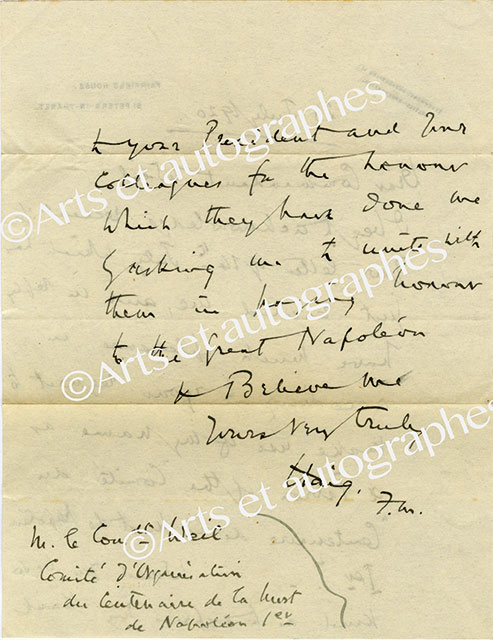 to your President and Your
Colleagues for the honour
which they have done me
by asking me to unite with
them in paying honour
to the great Napoléon
& Believe me
Yours Very truly
Haig.
F.M.
M. le Com<sup>dt</sup> Weil
Comité d'Organisation
du Centenaire de la Mort
de Napoléon 1er
©Arts et autographes
©Arts et autographes
©Arts et autographes
©Arts et autographes
©Arts et autographes